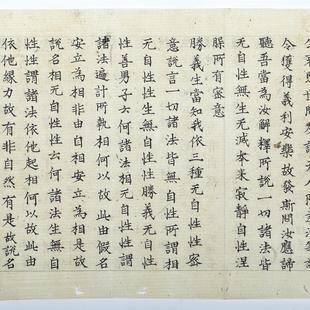 令獲得義利安樂故發斯問汝應諦
聽吾當為汝解釋所說一切諸法皆
无自性无生无滅本来寂靜自性涅
槃所有密意
勝義生當知我依三種无自性性密
意說言一切諸法皆无自性所謂相
无自性性生无自性性勝義无自性
性善男子云何諸法相无自性性謂
諸法遍計所執相何以故此由假名
安立為相非由自相安立為相是故
說名相无自性性云何諸法生无自
性性謂諸法依他起相何以故此由
依他緣力故有非自然有是故說名